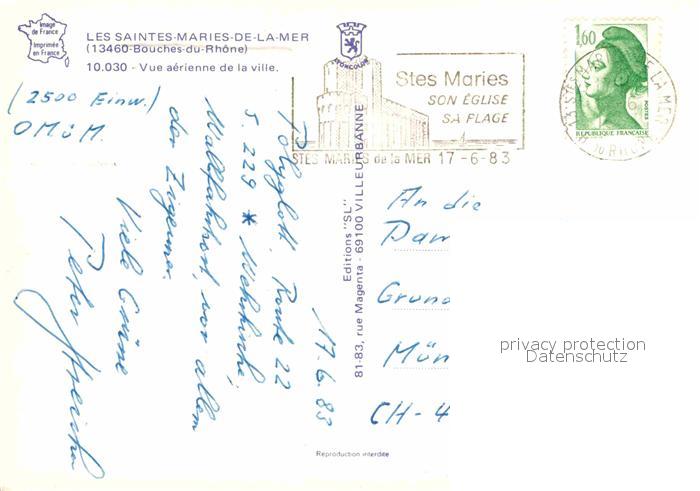 Image
de France
Imprimée
en France
LES SAINTES-MARIES-DE-LA-MER
(13460-Bouches-du-Rhône)
10.030 - Vue aérienne de la ville.
(2500 Einw.)
OMüM.
17-6-83
Polyglott, Route 22
S. 229 * Wehrkirche,
Wallfahrtsort, vor allem
der Zigeuner.
Viele Grüsse
Peter
Editions "SL"
81-83, rue Magenta - 69100 VILLEURBANNE
Stes Maries
SON ÉGLISE
SA PLAGE
STES MARIES de la MER 17-6-83
1,60
POSTES
REPUBLIQUE FRANÇAISE
An die
Dam
Grund
Mün
CH-4
privacy protection
Datenschutz
Reproduction interdite